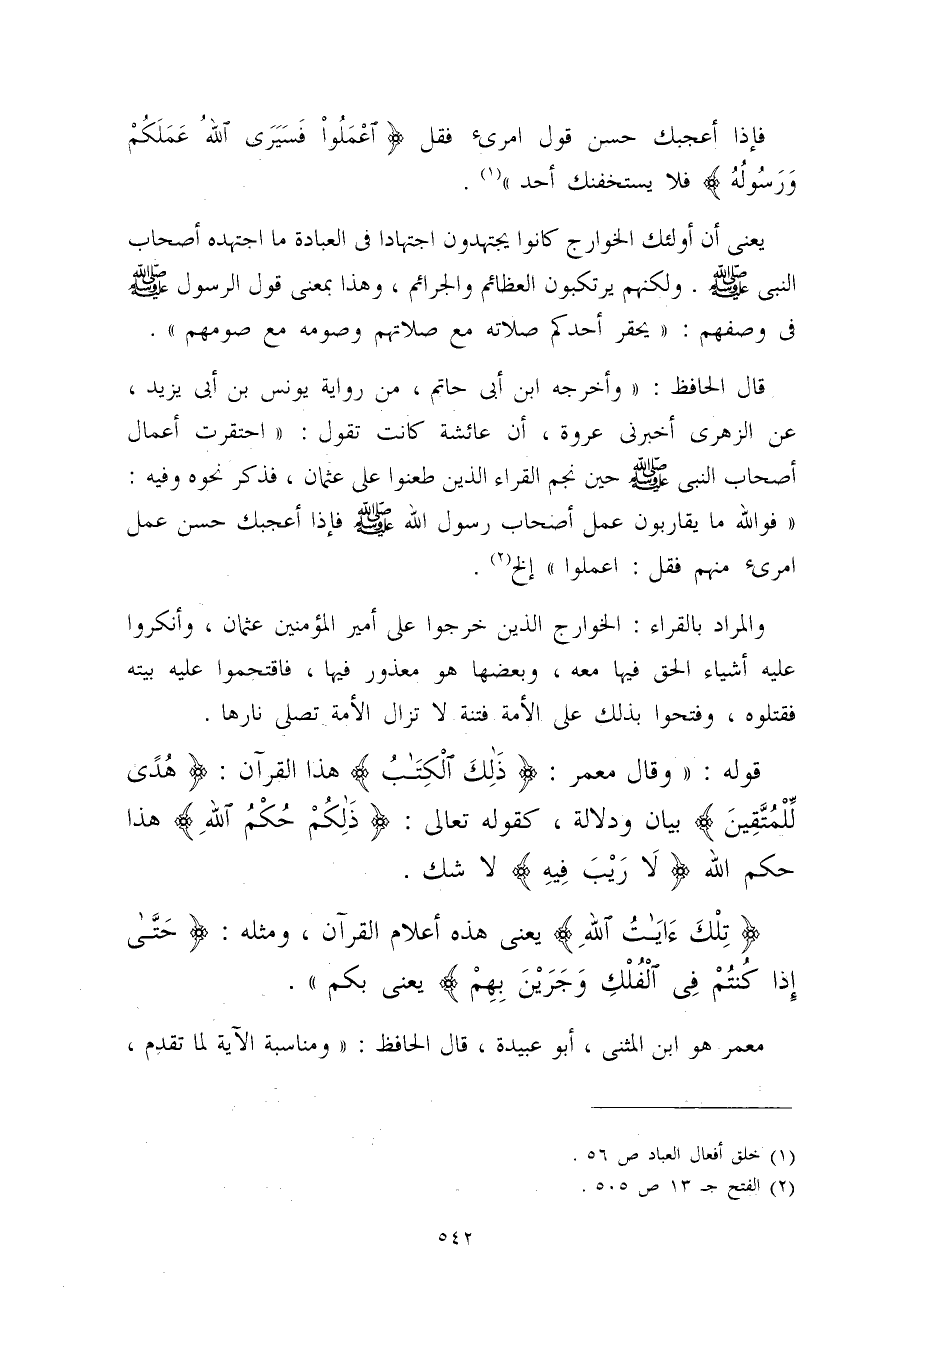 فإذا أعجبك حسن قول امرىء فقل ﴿ ٱعْمَلُواْ فَسَيَرَى ٱللَّهُ عَمَلَكُمْ
وَرَسُولُهُ ﴾ فلا يستخفنك أحد »(١) .
يعنى أن أولئك الخوارج كانوا يجتهدون اجتهادا فى العبادة ما اجتهده أصحاب
النبى ﷺ . ولكنهم يرتكبون العظائم والجرائم ، وهذا بمعنى قول الرسول ﷺ
فى وصفهم : « يحقر أحدكم صلاته مع صلاتهم وصومه مع صومهم » .
قال الحافظ : « وأخرجه ابن أبى حاتم ، من رواية يونس بن أبى يزيد ،
عن الزهرى أخبرنى عروة ، أن عائشة كانت تقول : « احتقرت أعمال
أصحاب النبى ﷺ حين نجم القراء الذين طعنوا على عثمان ، فذكر نحوه وفيه :
« فوالله ما يقاربون عمل أصحاب رسول الله ﷺ فإذا أعجبك حسن عمل
امرىء منهم فقل : اعملوا » إلخ(٢) .
والمراد بالقراء : الخوارج الذين خرجوا على أمير المؤمنين عثمان ، وأنكروا
عليه أشياء الحق فيها معه ، وبعضها هو معذور فيها ، فاقتحموا عليه بيته
فقتلوه ، وفتحوا بذلك على الأمة فتنة لا تزال الأمة تصلى نارها .
قوله : « وقال معمر : ﴿ ذَٰلِكَ ٱلْكِتَـٰبُ ﴾ هذا القرآن : ﴿ هُدًى
لِّلْمُتَّقِينَ ﴾ بيان ودلالة ، كقوله تعالى : ﴿ ذَٰلِكُمْ حُكْمُ ٱللَّهِ ﴾ هذا
حكم الله ﴿ لَا رَيْبَ فِيهِ ﴾ لا شك .
﴿ تِلْكَ ءَايَـٰتُ ٱللَّهِ ﴾ يعنى هذه أعلام القرآن ، ومثله : ﴿ حَتَّىٰ
إِذَا كُنتُمْ فِى ٱلْفُلْكِ وَجَرَيْنَ بِهِمْ ﴾ يعنى بكم » .
معمر هو ابن المثنى ، أبو عبيدة ، قال الحافظ : « ومناسبة الآية لما تقدم ،
(١) خلق أفعال العباد ص ٥٦ .
(٢) الفتح جـ ١٣ ص ٥٠٥ .
٥٤٢